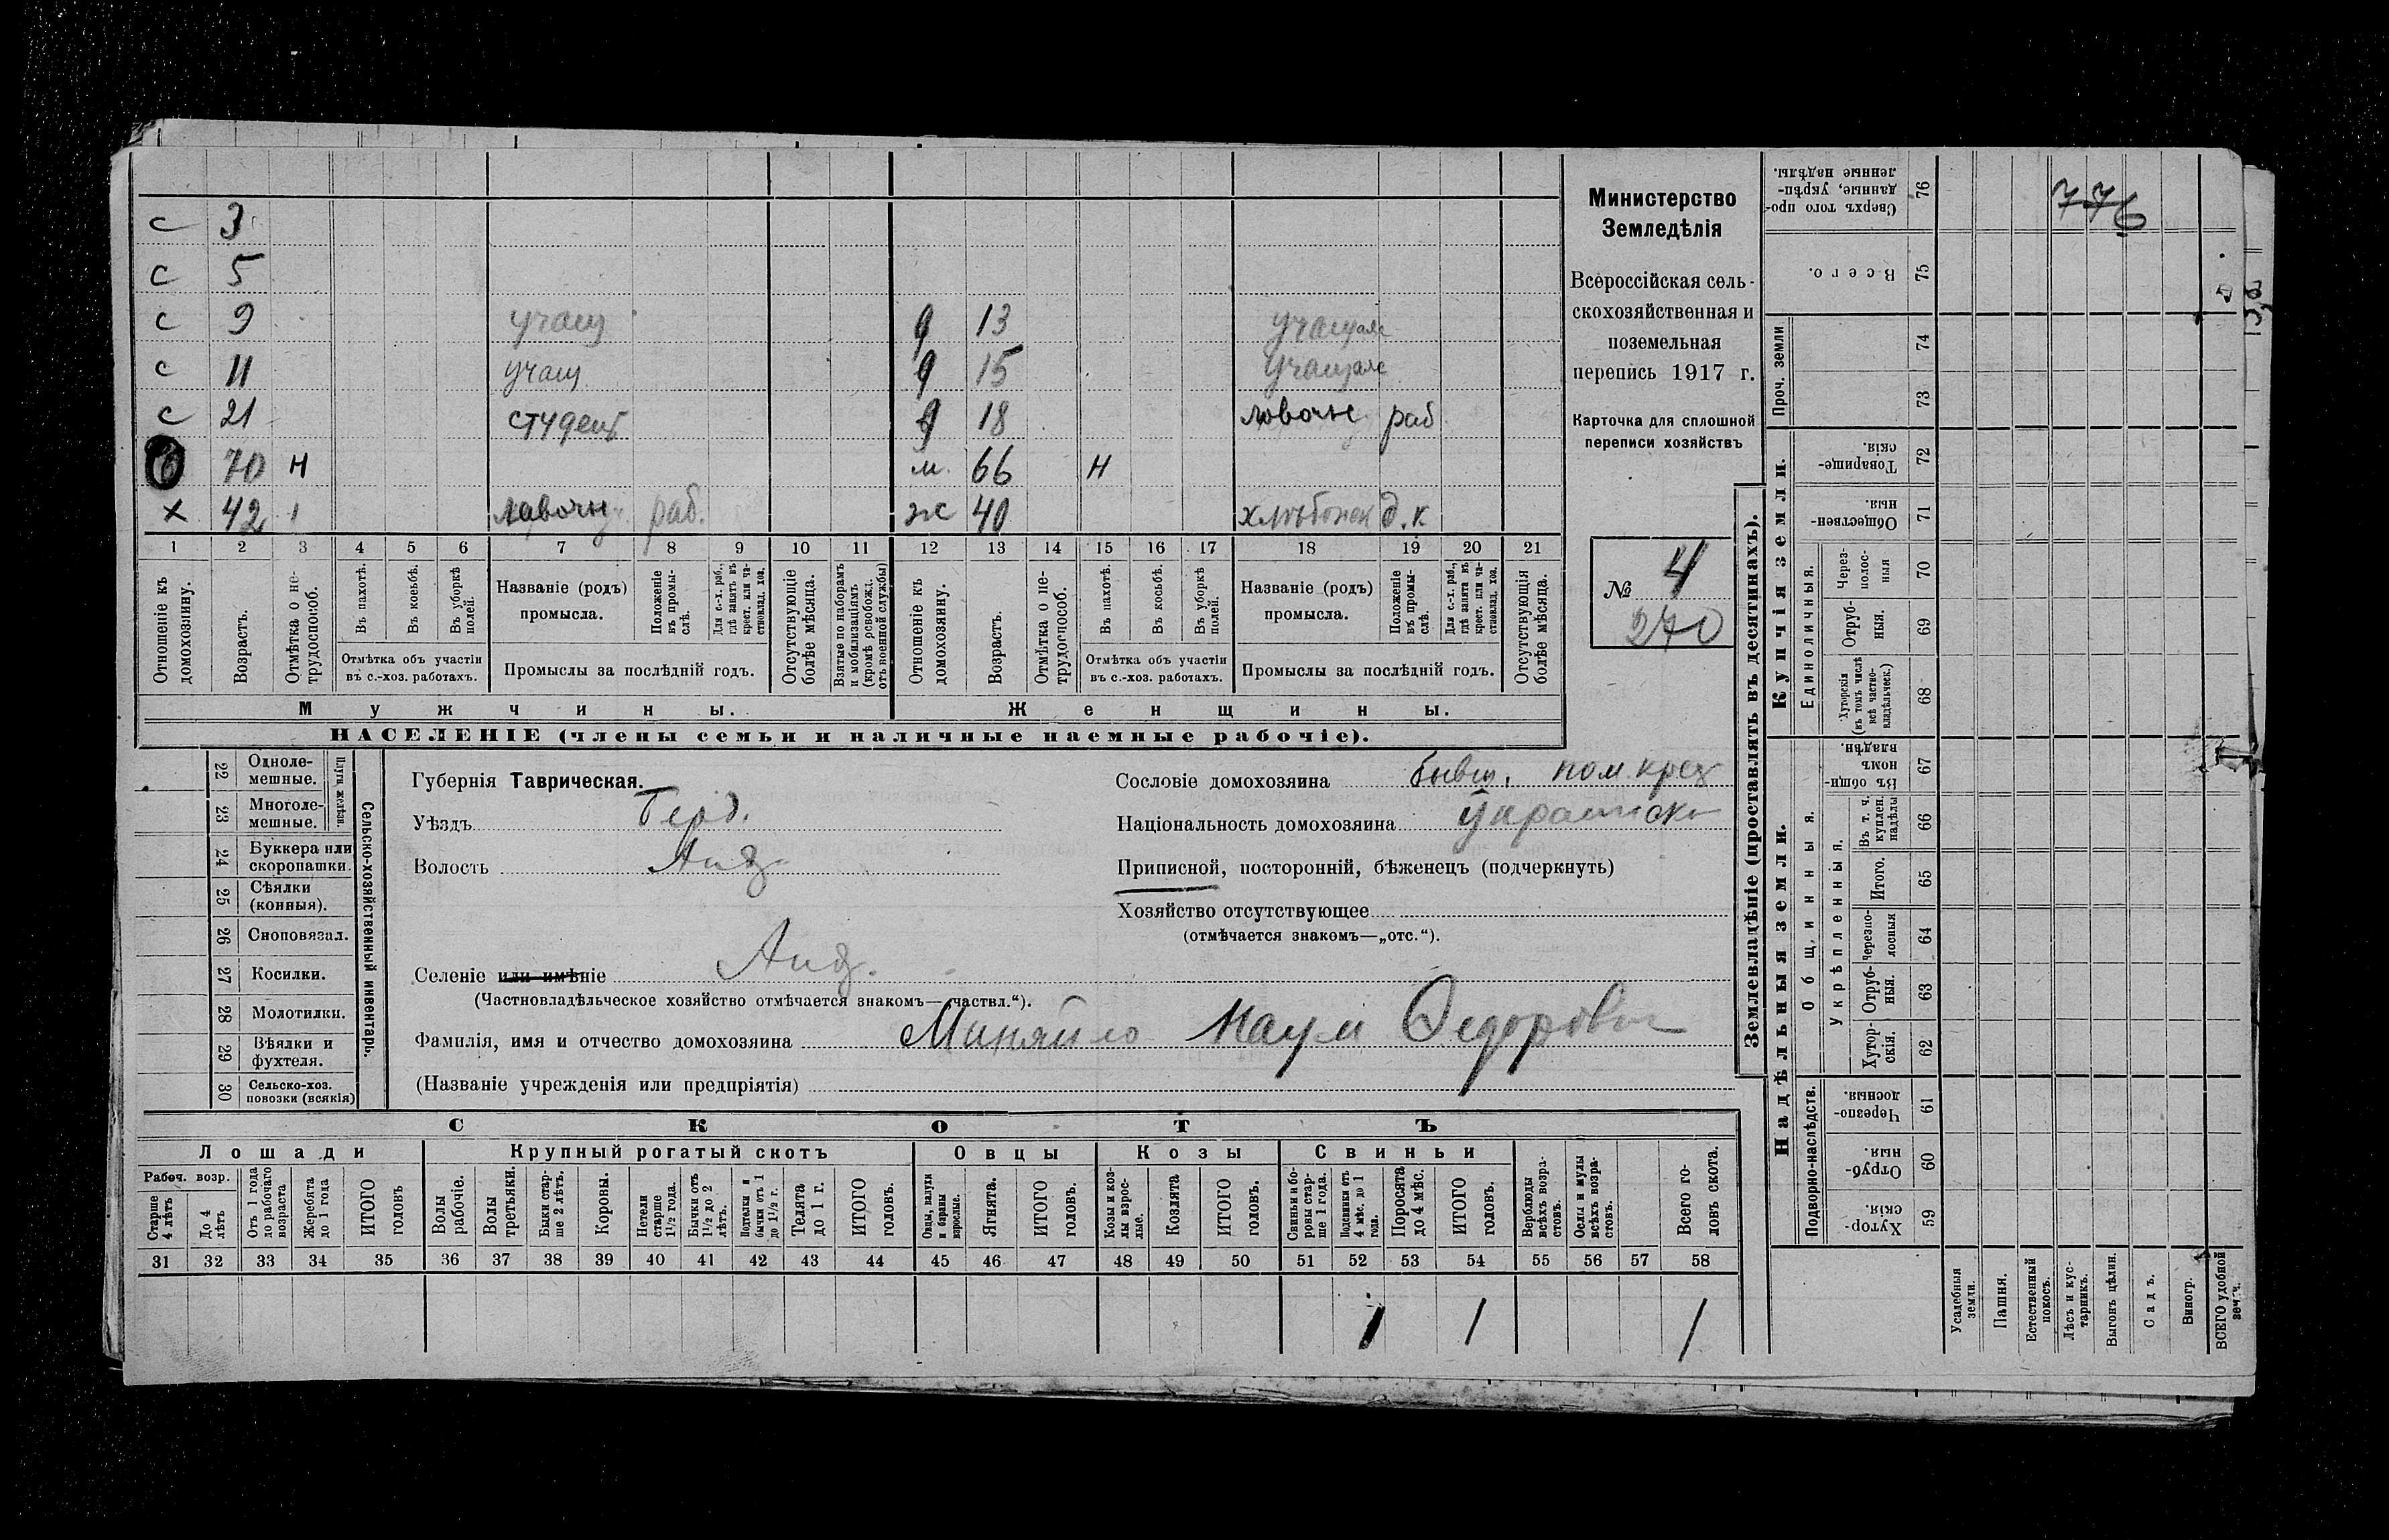 с 3
с 5
с 9 учащ 9 13 учащаяс
с 11 учащ 9 15 учащаяс
с 21 студент 9 18 лавочн раб
70 н м. 66 н
х 42 лавочн раб. ж 40 д. к
1 2 3 4 5 6 7 8 9 10 11 12 13 14 15 16 17 18 19 20 21
Отношеніе къ домохозяину.
Возрастъ.
Отмѣтка о не-трудоспособ.
Въ пахотѣ.
Въ косьбѣ.
Въ уборкѣ полей.
Отмѣтка объ участіи въ с.-хоз. работахъ.
Названіе (родъ) промысла.
Положеніе въ промы-слѣ.
Для с.-х. раб., гдѣ занятъ въ крест. или ча-стновлад. хоз.
Промыслы за послѣдній годъ.
Отсутствующіе болѣе мѣсяца.
Взятые по наборамъ и мобилизаціямъ (кромѣ освобожд. отъ военной службы)
Отношеніе къ домохозяину.
Возрастъ.
Отмѣтка о не-трудоспособ.
Въ пахотѣ.
Въ косьбѣ.
Въ уборкѣ полей.
Отмѣтка объ участіи въ с.-хоз. работахъ.
Названіе (родъ) промысла.
Положеніе въ промы-слѣ.
Для с.-х. раб., гдѣ занята въ крест. или ча-стновлад. хоз.
Промыслы за послѣдній годъ.
Отсутствующія болѣе мѣсяца.
Мужчины. Женщины.
НАСЕЛЕНІЕ (члены семьи и наличные наемные рабочіе).
Министерство
Земледѣлія
Всероссійская сель-
скохозяйственная и
поземельная
перепись 1917 г.
Карточка для сплошной
переписи хозяйствъ
№ 4
270
22 Одноле-мешные.
23 Многоле-мешные.
Плуги желѣзн.
24 Буккера или скоропашки.
25 Сѣялки (конныя).
26 Сноповязал.
27 Косилки.
28 Молотилки.
29 Вѣялки и фухтеля.
30 Сельско-хоз. повозки (всякія)
Сельско-хозяйственный инвентарь.
Губернія Таврическая.
Уѣздъ Берд.
Волость Анд.
Селеніе или имѣніе Анд.
(Частновладѣльческое хозяйство отмѣчается знакомъ—„частвл.“).
Фамилія, имя и отчество домохозяина Миняйло Наум Федорович
(Названіе учрежденія или предпріятія)
Сословіе домохозяина бывш. пом. крест
Національность домохозяина
Приписной, посторонній, бѣженецъ (подчеркнуть)
Хозяйство отсутствующее
(отмѣчается знакомъ—„отс.“).
СКОТЪ
Лошади Крупный рогатый скотъ Овцы Козы Свиньи
Рабоч. возр.
Старше 4 лѣтъ
До 4 лѣтъ
Отъ 1 года до рабочаго возраста
Жеребята до 1 года
ИТОГО головъ
Волы рабочіе.
Волы третьяки.
Быки стар-ше 2 лѣтъ.
Коровы.
Нетели старше 1½ года.
Бычки отъ 1½ до 2 лѣтъ.
Подтелки и бычки отъ 1 до 1½ г.
Телята до 1 г.
ИТОГО головъ.
Овцы, валухи и бараны взрослые.
Ягнята.
ИТОГО головъ.
Козы и коз-лы взрос-лые.
Козлята
ИТОГО головъ.
Свиньи и бо-ровы стар-ше 1 года.
Подсвинки отъ 4 мѣс. до 1 года.
Поросята до 4 мѣс.
ИТОГО головъ.
Верблюды всѣхъ возра-стовъ.
Ослы и мулы всѣхъ возра-стовъ.
Всего го-ловъ скота.
31 32 33 34 35 36 37 38 39 40 41 42 43 44 45 46 47 48 49 50 51 52 53 54 55 56 57 58
1 1 1
Землевладѣніе (проставлять въ десятинахъ).
Надѣльныя земли.
Купчія земли.
Проч. земли
Подворно-наслѣдств.
Общинныя.
Укрѣпленныя.
Единоличныя.
Сверхъ того про-данные, укрѣп-ленные надѣлы. 76
Всего. 75
74
73
Товарище-скія. 72
Обществен-ныя. 71
Через-полос-ныя 70
Отруб-ныя. 69
Хуторскія (въ томъ числѣ всѣ частно-владѣльческ.) 68
Въ общи-номъ владѣн. 67
Въ т. ч. куплен. надѣлы 66
Итого. 65
Черезпо-лосныя 64
Отруб-ныя. 63
Хутор-скія. 62
Черезпо-лосныя. 61
Отруб-ныя. 60
Хутор-скія. 59
Усадебная земля.
Пашня.
Естественный покосъ.
Лѣсъ и кус-тарникъ.
Выгонъ цѣлин.
Садъ.
Виногр.
ВСЕГО удобной
776